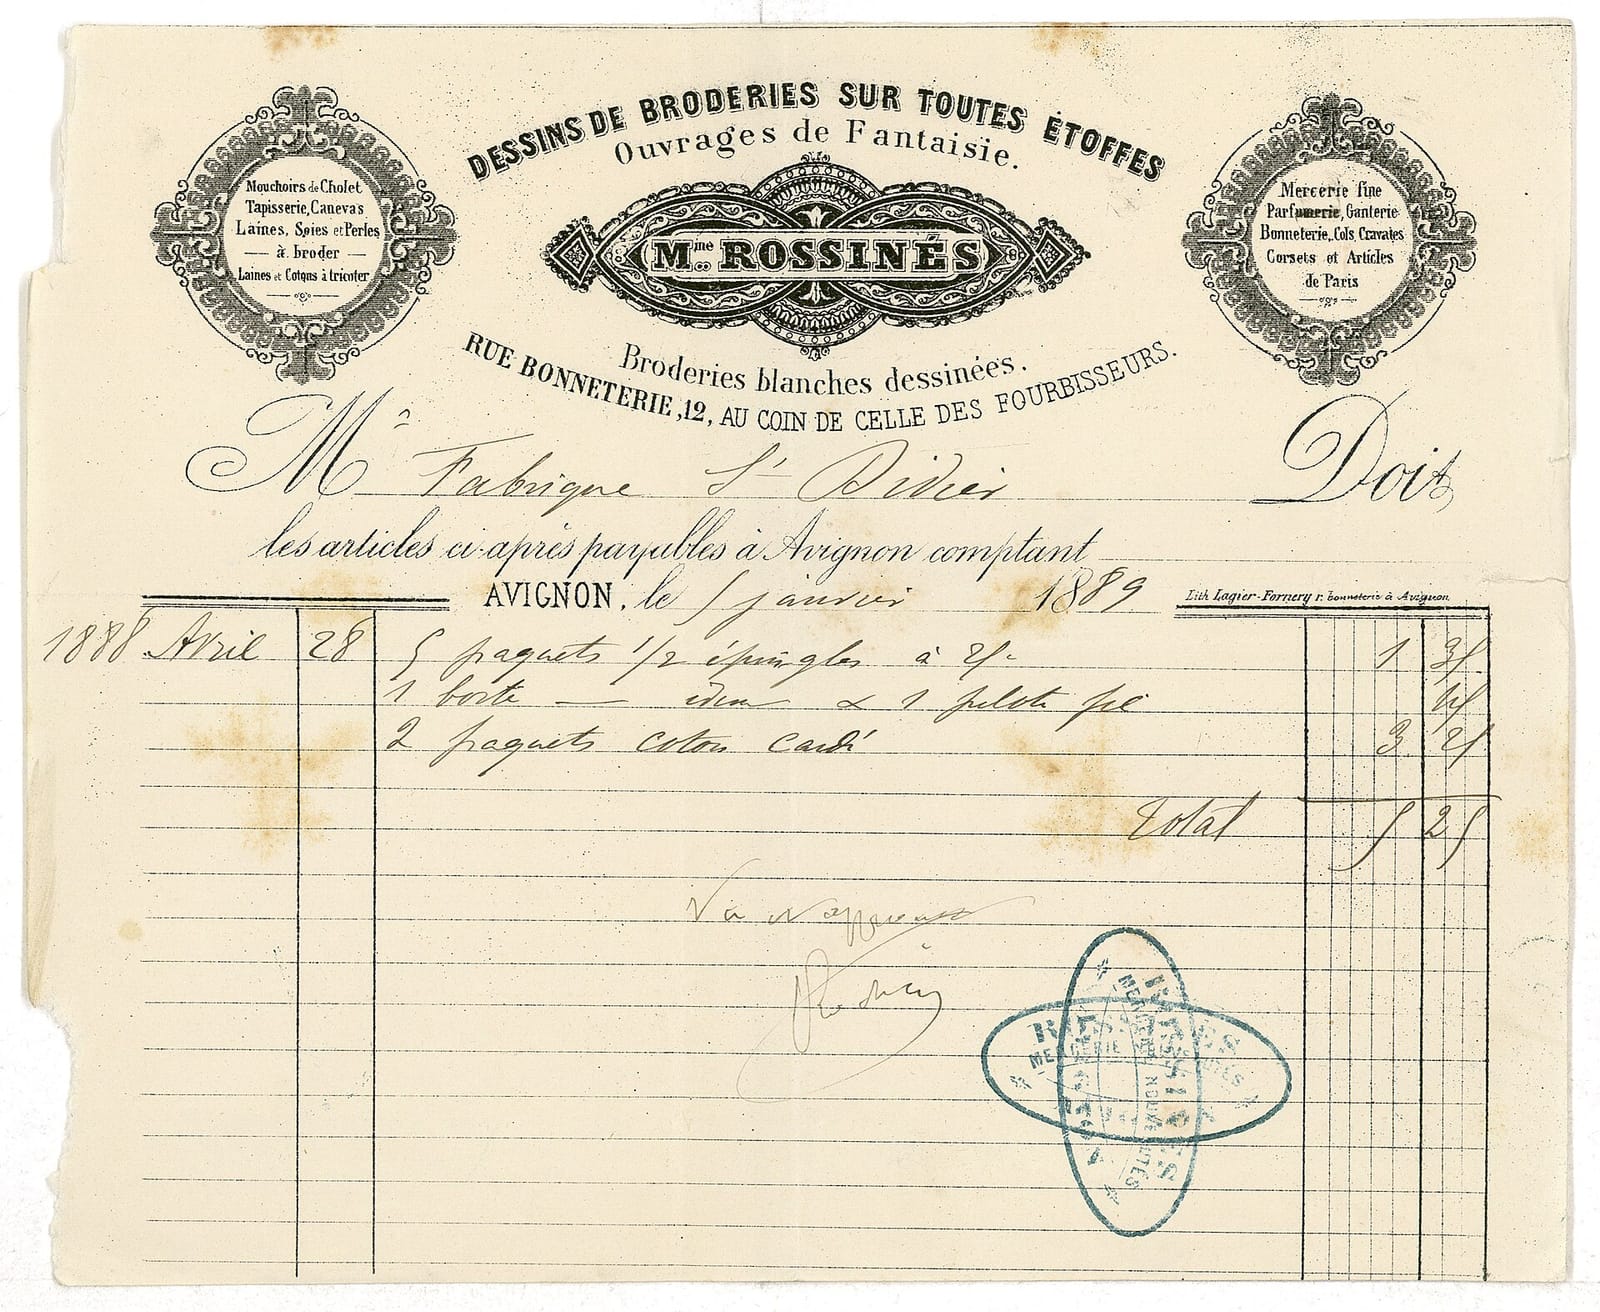 DESSINS DE BRODERIES SUR TOUTES ÉTOFFES
Ouvrages de Fantaisie.
Mouchoirs de Cholet
Tapisserie, Canevas
Laines, Soies et Perles
à broder
Laines et Cotons à tricoter
Mme ROSSINÉS
Mercerie fine
Parfumerie, Ganterie
Bonneterie, Cols, Cravates
Corsets et Articles
de Paris
Broderies blanches dessinées.
RUE BONNETERIE, 12, AU COIN DE CELLE DES FOURBISSEURS.
M Fabrique St Didier Doit
les articles ci-après payables à Avignon comptant
AVIGNON, le 5 janvier 1889
Lith Lagier-Fornery r. Bonneterie à Avignon
1888 Avril 28 5 paquets 1/2 épingles à 1 35
1 boite — idem & 1 pelote fil
2 paquets coton cardé 3
Total 5 25
ROSSINES
MERCERIE NOUVEAUTÉS